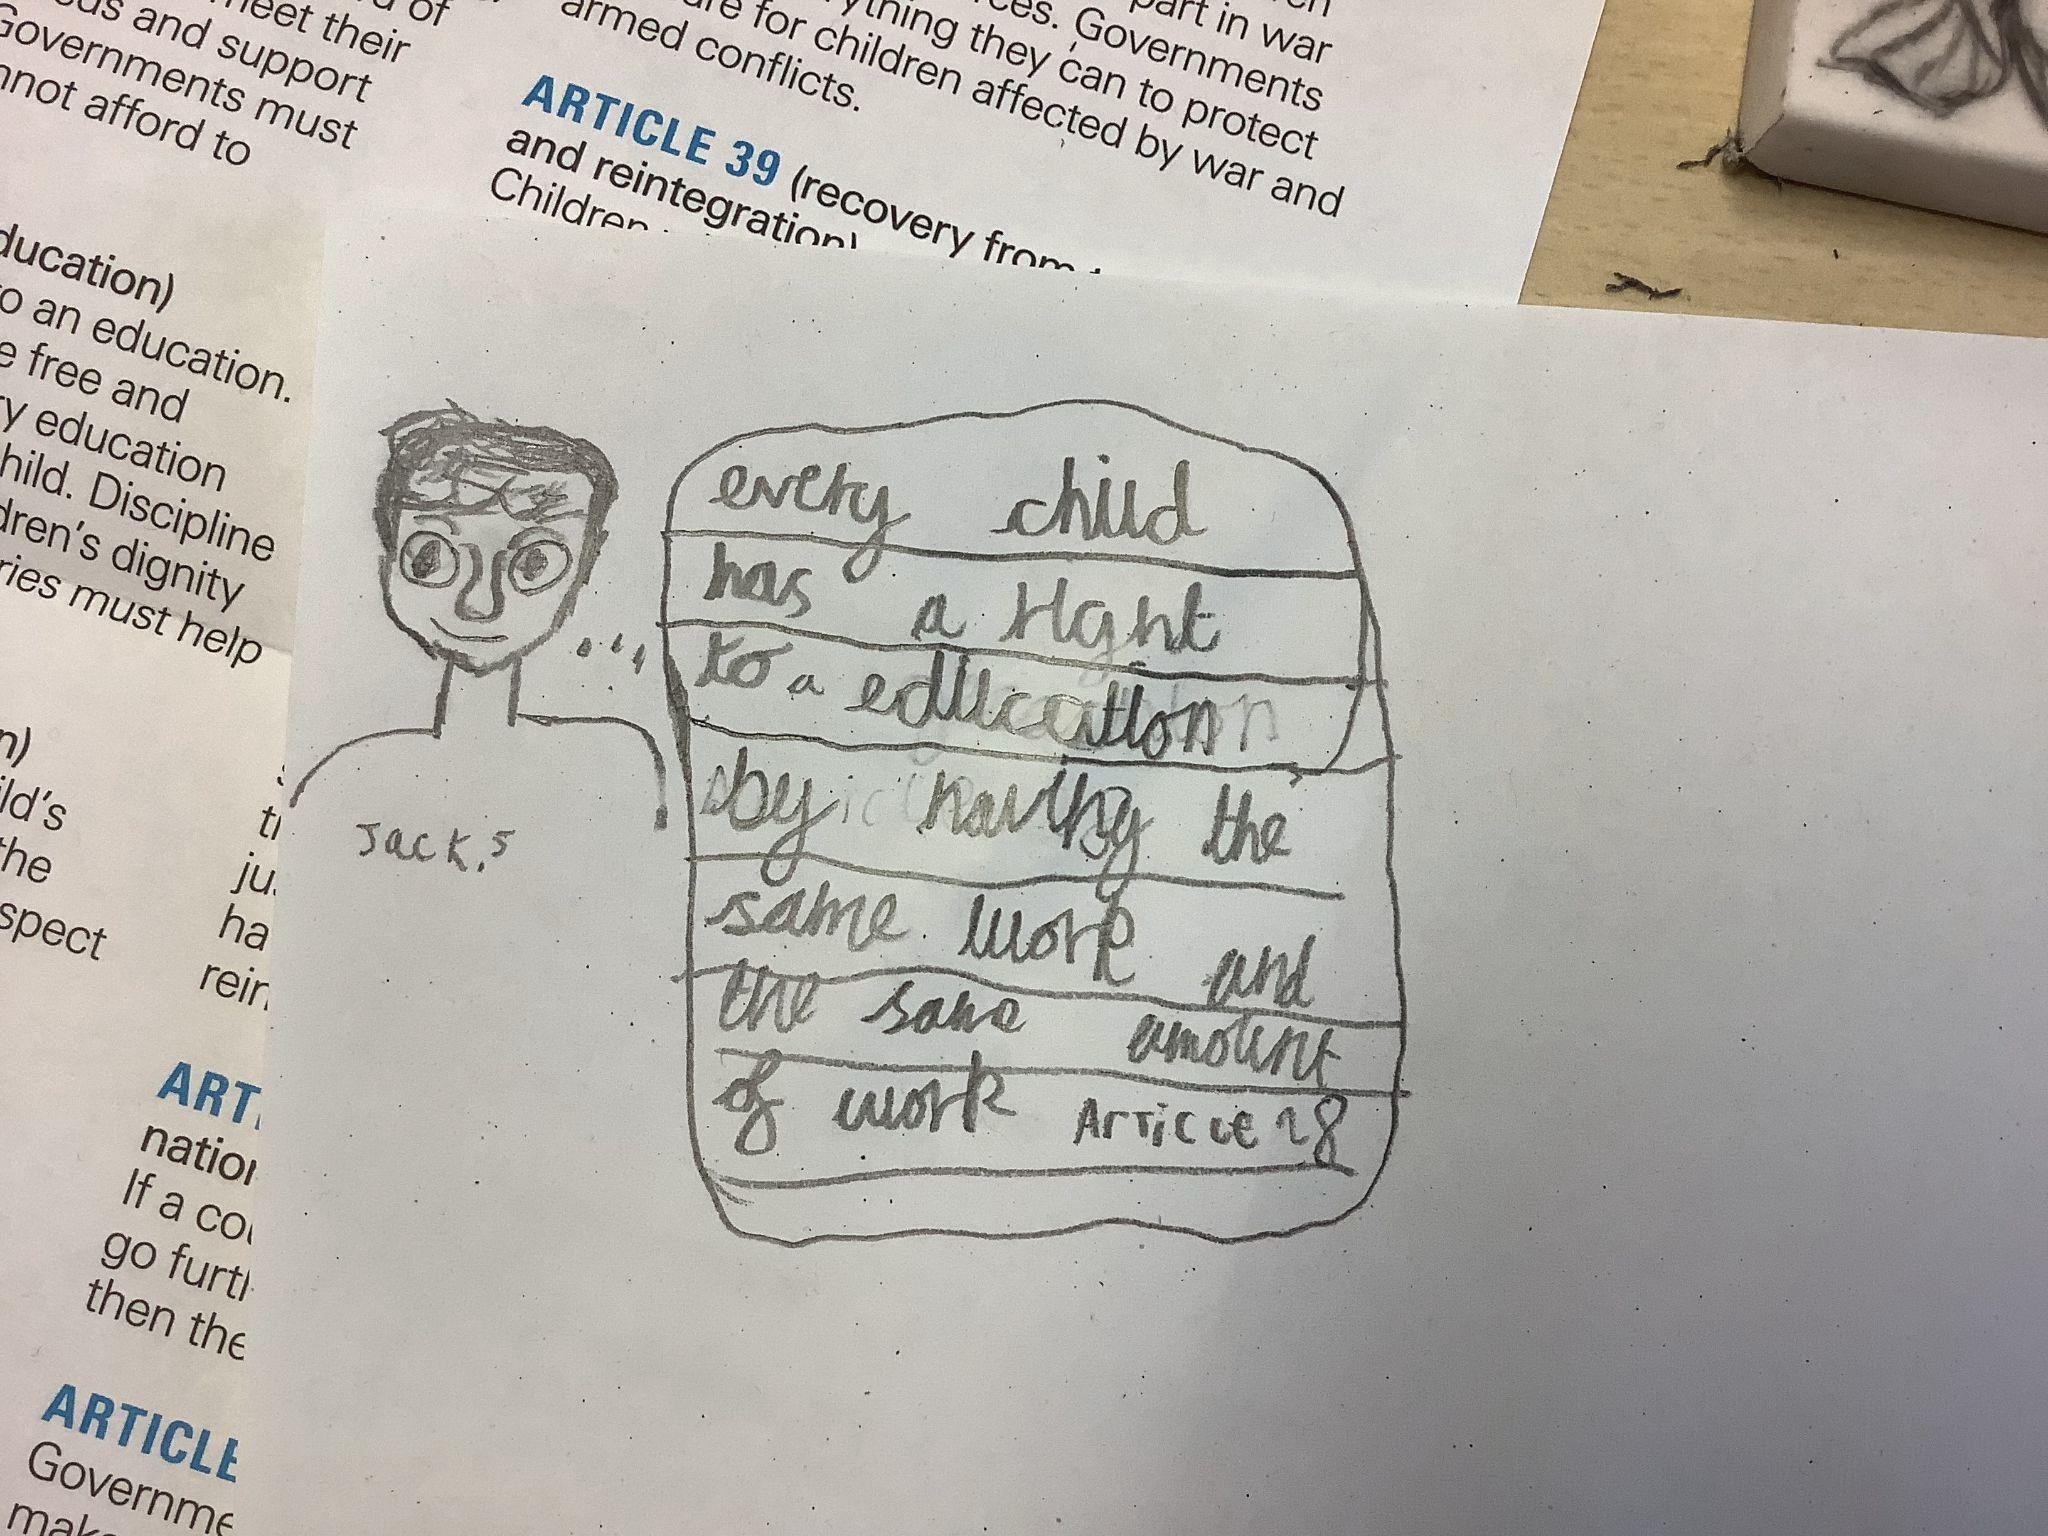 meet their
and support
Governments must
not afford to
ducation)
o an education.
e free and
y education
hild. Discipline
dren's dignity
ries must help
ild's
the
spect
part in war
Governments
ything they can to protect
for children affected by war and
armed conflicts.
ARTICLE 39 (recovery from
and reintegration)
Children
ju
ha
rein
ART
nation
If a cou
go furth
then the
ARTICLE
Governme
make
every child
has a right
to a education
by having the
same work and
the same amount
of work Article 28
Jack.S